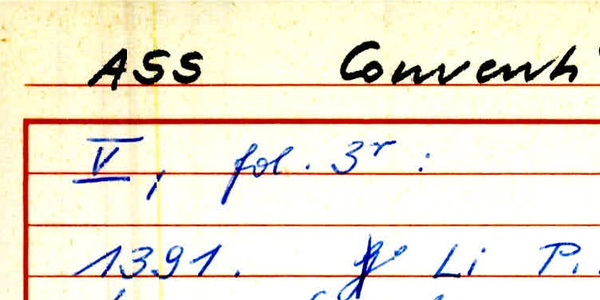 ASS Convent
V, fol. 3r :
1391. Li P.